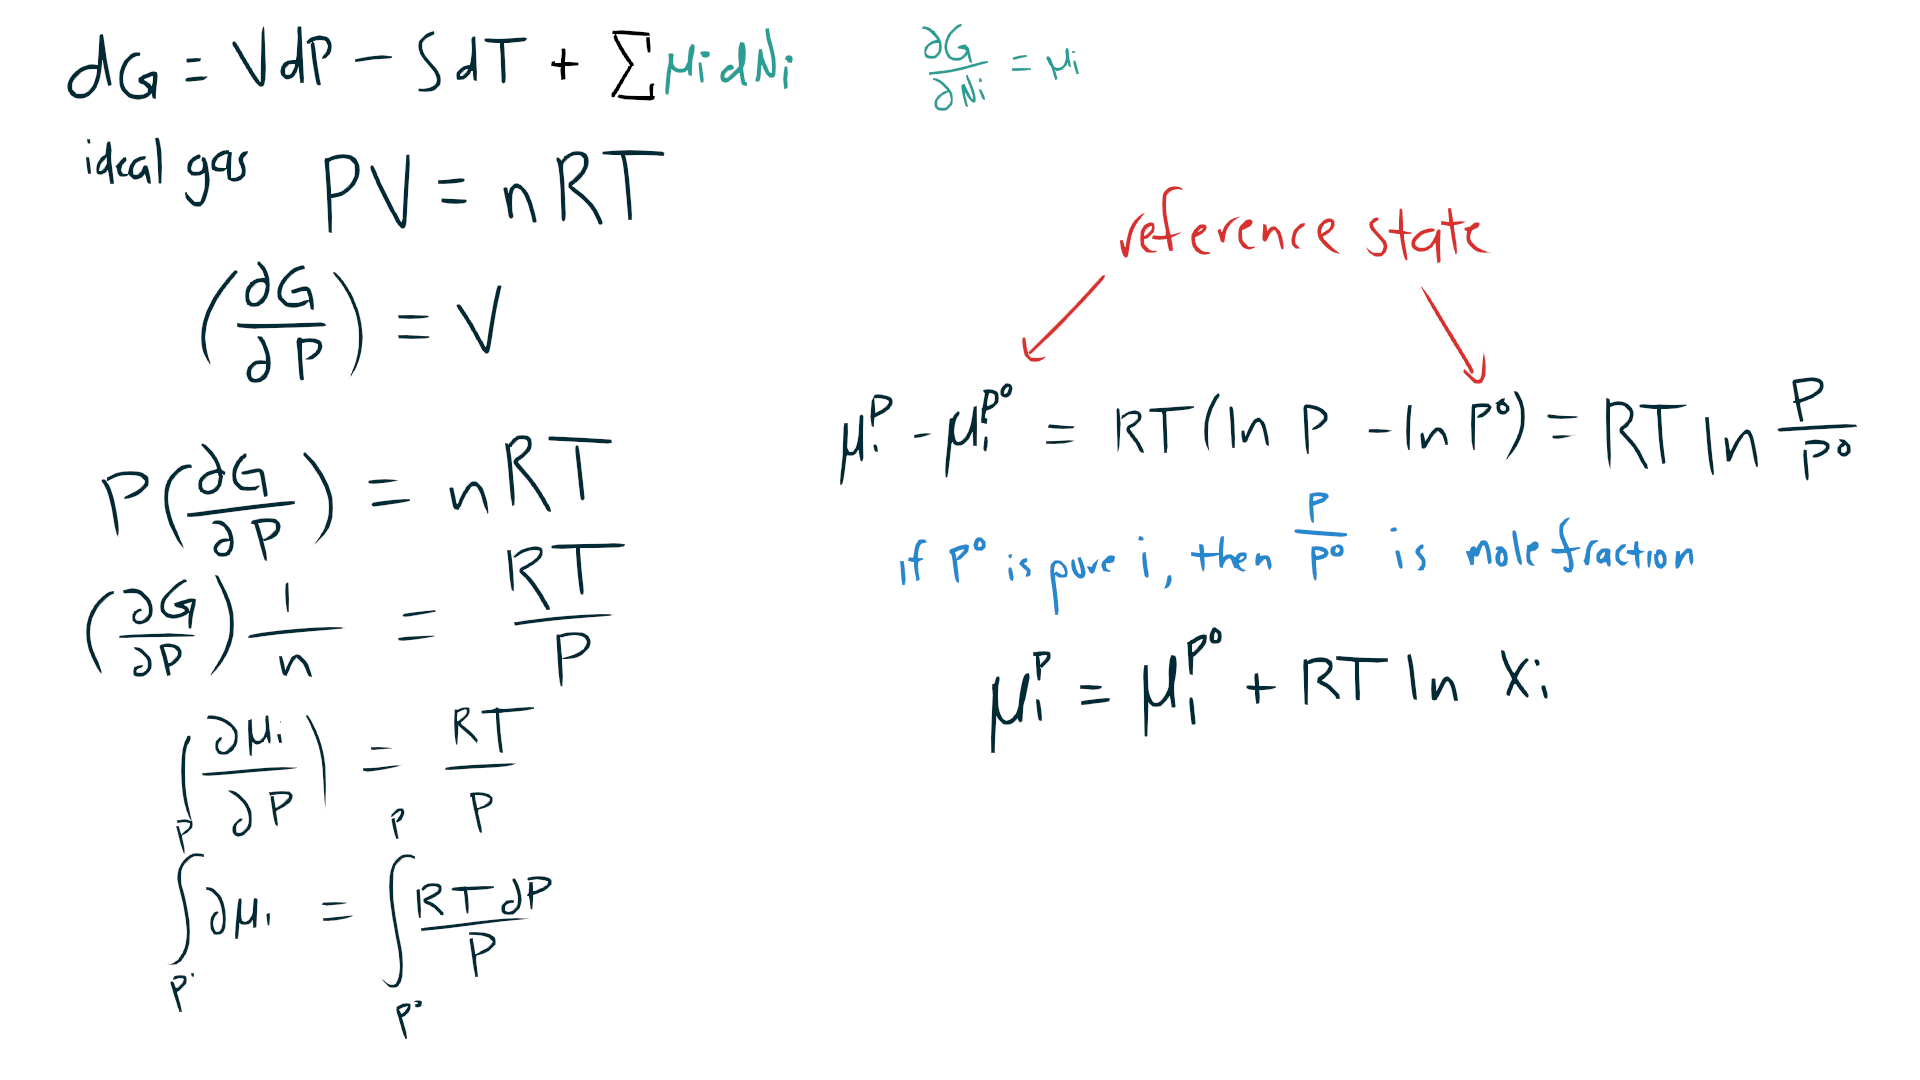 dG = VdP − SdT + ∑μᵢdNᵢ
∂G/∂Nᵢ = μᵢ
ideal gas PV = nRT
(∂G/∂P) = V
P(∂G/∂P) = nRT
(∂G/∂P) 1/n = RT/P
(∂μᵢ/∂P) = RT/P
∫_{P°}^{P} ∂μᵢ = ∫_{P°}^{P} RT∂P/P
reference state
μᵢ^P − μᵢ^{P°} = RT(ln P − ln P°) = RT ln P/P°
if P° is pure i, then P/P° is mole fraction
μᵢ^P = μᵢ^{P°} + RT ln Xᵢ